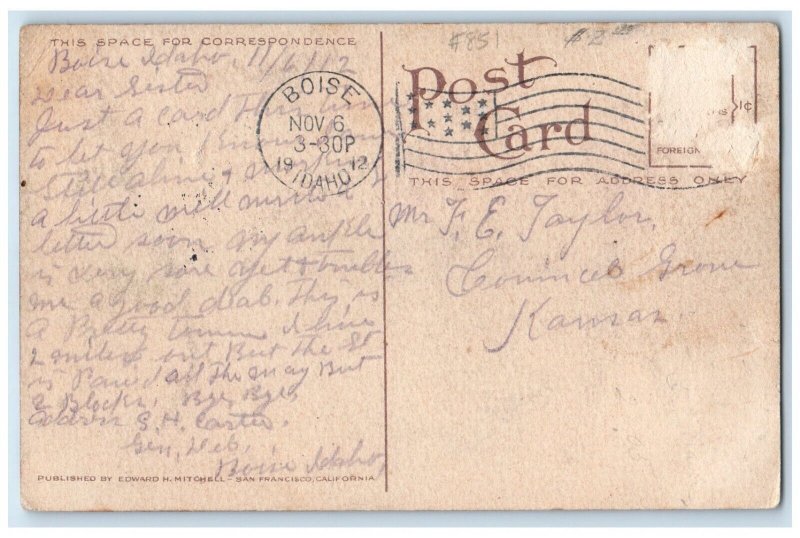 #851
$2.00
THIS SPACE FOR CORRESPONDENCE
Boise Idaho, 11/6/12
Dear Sister
Just a card this time
to let you know I am
Still alive &
a little will write a
letter soon my ankle
is very sore yet & troubles
me a good deal. This is
a Pretty town I live
2 miles out But the St
is Paved all the way But
2 Blocks. Bye Bye
address S. H. Carter,
Gen, Deb,
Boise Idaho,
PUBLISHED BY EDWARD H. MITCHELL - SAN FRANCISCO, CALIFORNIA
BOISE
NOV 6
3-30P
1912
IDAHO
Post
Card
1¢
FOREIGN
THIS SPACE FOR ADDRESS ONLY
Mr F. E. Taylor,
Council Grove
Kansas